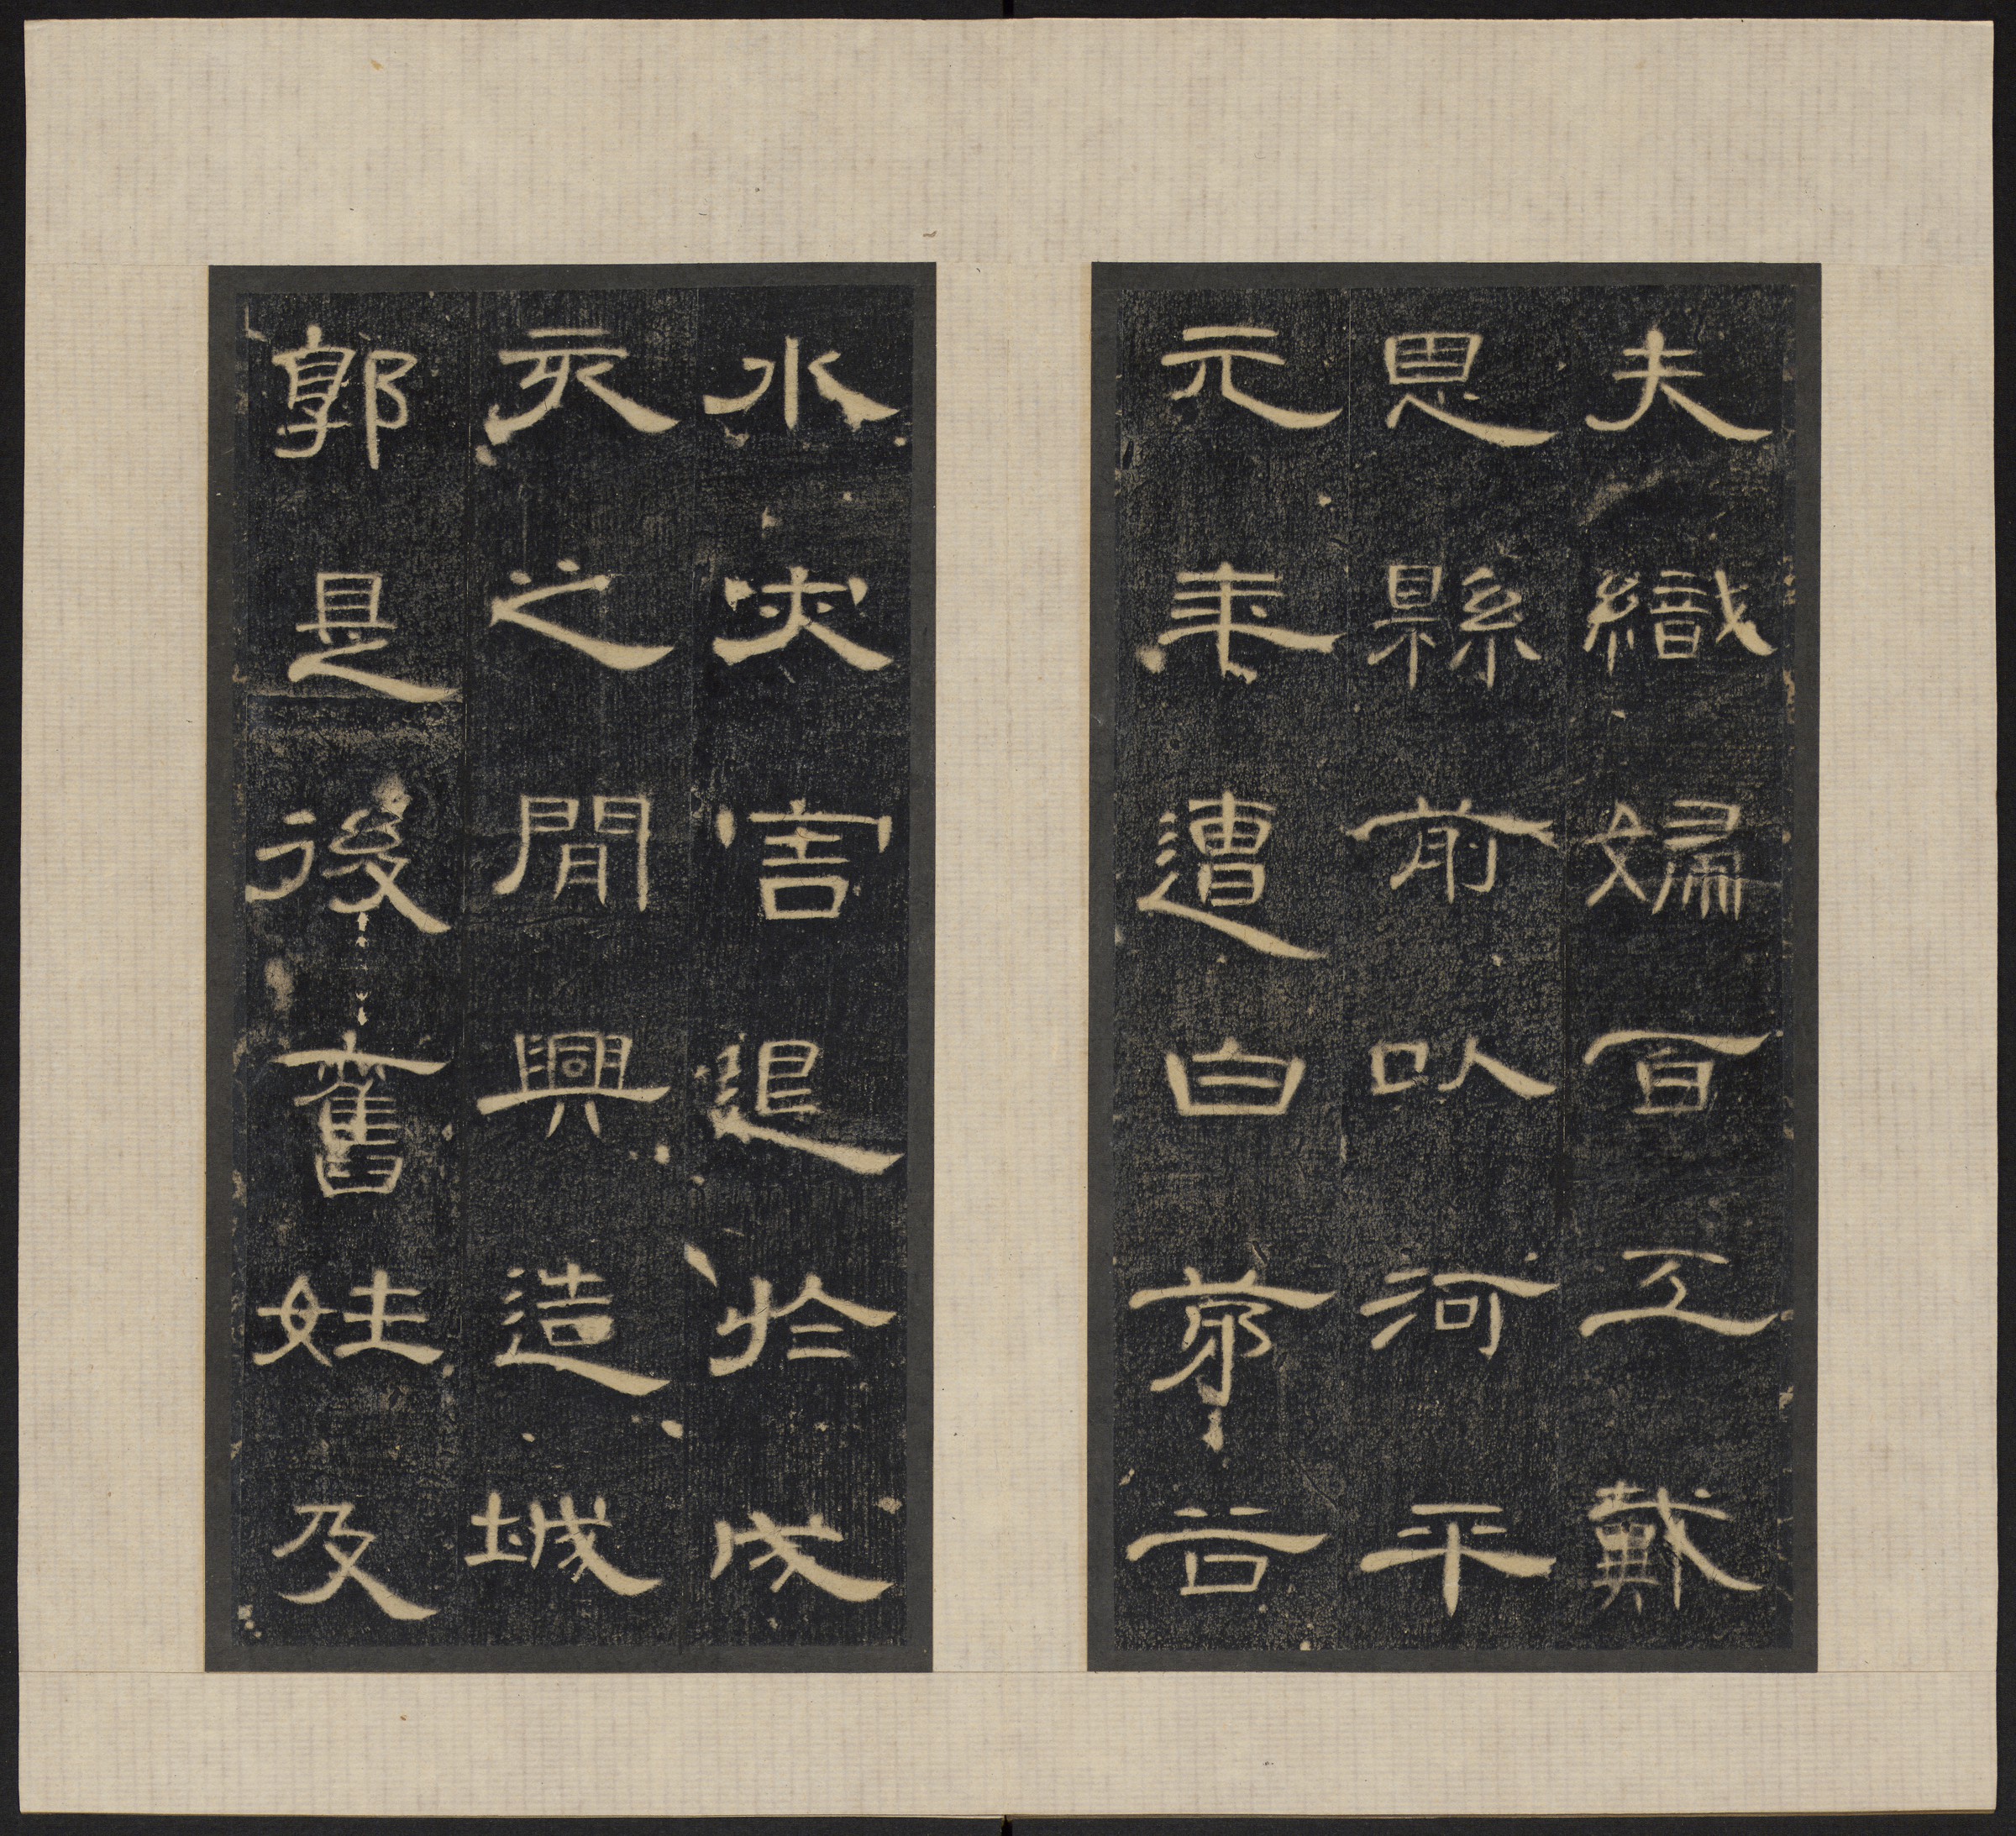 夫織婦百工戴
恩縣前以河平
元年遭白茅谷
水災害退於戌
亥之閒興造城
郭是後舊姓及